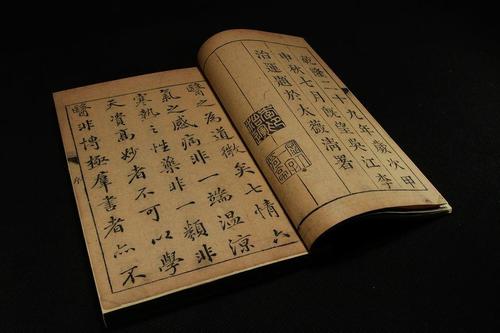 乾隆二十九年歲次甲
申秋七月既望吳江李
治運題於太薇清署
醫之為道微矣七情六
氣之感病非一端溫涼
寒熱之性藥非一類非
天資高妙者不可以學
醫非博極羣書者亦不